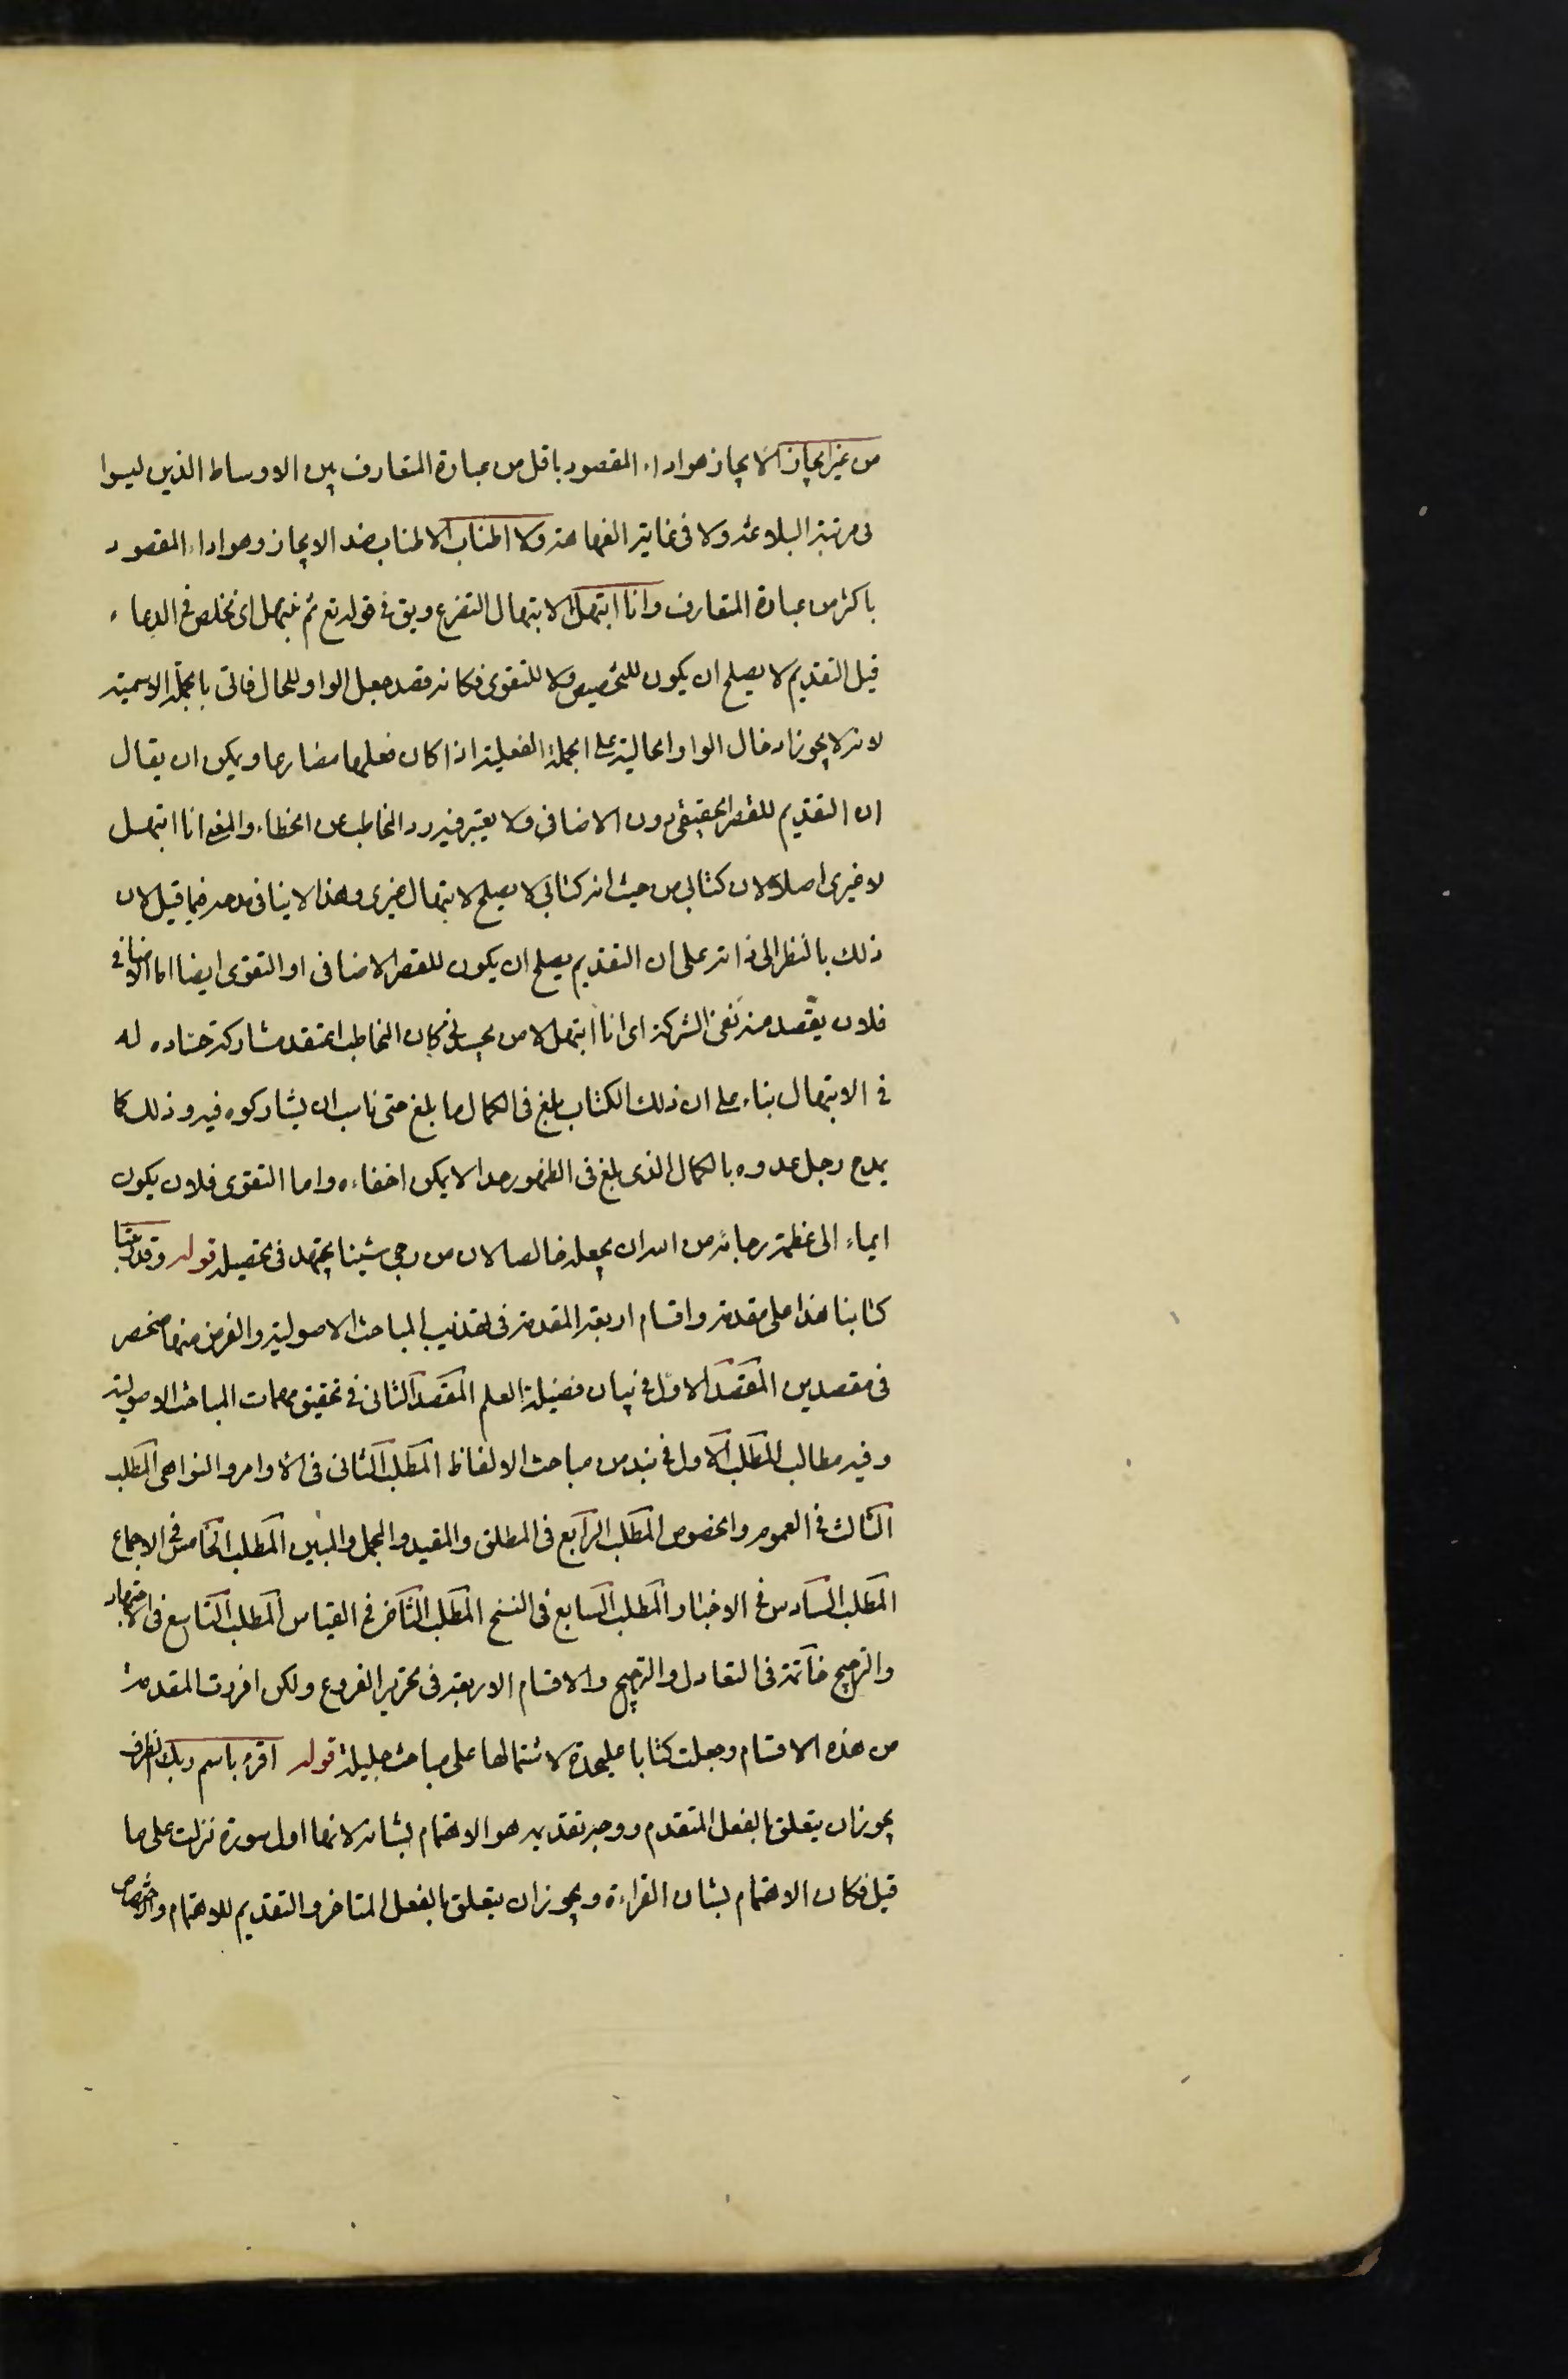 من غير ايجاز الايجاز هو اداء المقصود باقل من عبارة المتعارف بين الاوساط الذين ليسوا
فى مرتبة البلاغة ولا فى غاية الفهاهة ولا اطناب الاطناب ضد الايجاز وهو اداء المقصود
باكثر من عبارة المتعارف وانا ابتهل الابتهال التضرع ويق فى قوله تع ثم نبتهل اى نخلص فى الدعاء
قيل التقديم لا يصلح ان يكون للتخصيص ولا للتقوى فكانه قصد جعل الواو للحال فاتى بالجملة الاسمية
لانه لا يجوز ادخال الواو الحالية على الجملة الفعلية اذا كان فعلها مضارعا ويمكن ان يقال
ان التقديم للقصر الحقيقى دون الاضافى ولا يعتبر فيه رد المخاطب عن الخطاء والمعنى انا ابتهل
لا غيرى اصلا لان كتابى من حيث انه كتابى لا يصلح لابتهال غيرى وهذا لا ينافى مدحه فيما قيل لان
ذلك بالنظر الى ذاته على ان التقديم يصلح ان يكون للقصر الاضافى او التقوى ايضا اما الاضافى
فلان يقصد منه نفى الشركة اى انا ابتهل لا من يحسدنى فكان المخاطب اعتقد مشاركة حساده له
فى الابتهال بناء على ان ذلك الكتاب بلغ فى الكمال ما بلغ حتى ناسب ان يشاركوه فيه وذلك كما
يمدح رجل عدوه بالكمال الذى بلغ فى الظهور حدا لا يمكن اخفاءه واما التقوى فلان يكون
ايماء الى عظمة رجائه من الله ان يجعله خالصا لان من رجى شيئا يجتهد فى تحصيله قوله وقد رتبنا
كتابنا هذا على مقدمة واقسام اربعة المقدمة فى تهذيب المباحث الاصولية والغرض منها منحصر
فى مقصدين المقصد الاول فى بيان فضيلة العلم المقصد الثانى فى تحقيق مهمات المباحث الاصولية
وفيه مطالب المطلب الاول فى نبذ من مباحث الالفاظ المطلب الثانى فى الاوامر والنواهى المطلب
الثالث فى العموم والخصوص المطلب الرابع فى المطلق والمقيد والمجمل والمبين المطلب الخامس فى الاجماع
المطلب السادس فى الاخبار المطلب السابع فى النسخ المطلب الثامن فى القياس المطلب التاسع فى الاجتهاد
والترجيح خاتمة فى التعادل والترجيح والاقسام الاربعة فى تحرير الفروع ولكن افردت المقدمة
من هذه الاقسام وجعلت كتابا عليحدة لاشتمالها على مباحث جليلة قوله اقرء باسم ربك الظرف
يجوز ان يتعلق بالفعل المتقدم ووجه تقديمه هو الاهتمام بشانه لانها اول سورة نزلت على ما
قيل فكان الاهتمام بشان القراءة ويجوز ان يتعلق بالفعل المتاخر والتقديم للاهتمام والاختصاص